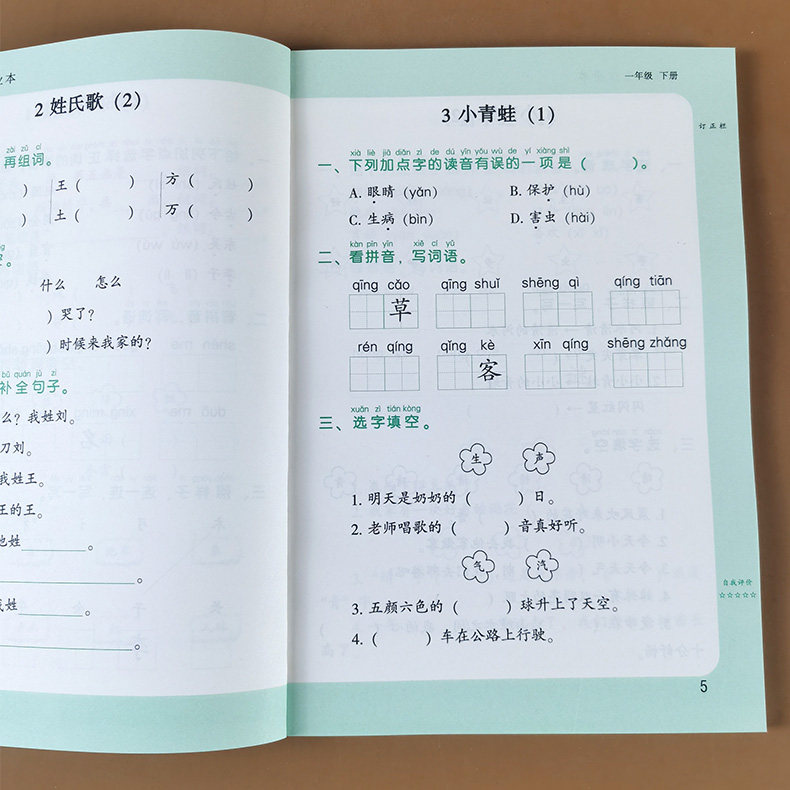 业本
2 姓氏歌（2）
zài zǔ cí
再组词。
） 王（ ） 方（ ）
） 土（ ） 万（ ）
什么 怎么
）哭了？
）时候来我家的？
bǔ quán jù zi
补全句子。
么？我姓刘。
刀刘。
我姓王。
王的王。
他姓________。
________。
我姓________。
一年级 下册
订正栏
3 小青蛙（1）
xià liè jiā diǎn zì de dú yīn yǒu wù de yí xiàng shì
一、下列加点字的读音有误的一项是（ ）。
A. 眼睛（yǎn） B. 保护（hù）
C. 生病（bìn） D. 害虫（hài）
kàn pīn yīn xiě cí yǔ
二、看拼音，写词语。
qīng cǎo qīng shuǐ shēng qì qíng tiān
草
rén qíng qǐng kè xīn qíng shēng zhǎng
客
xuǎn zì tián kòng
三、选字填空。
生 声
1. 明天是奶奶的（ ）日。
2. 老师唱歌的（ ）音真好听。
气 汽
3. 五颜六色的（ ）球升上了天空。
4.（ ）车在公路上行驶。
自我评价
☆☆☆☆☆
5